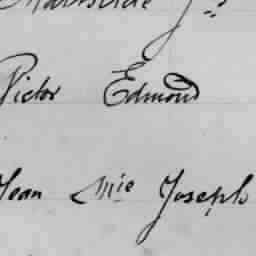 Victor Edmond
Jean Mie Joseph